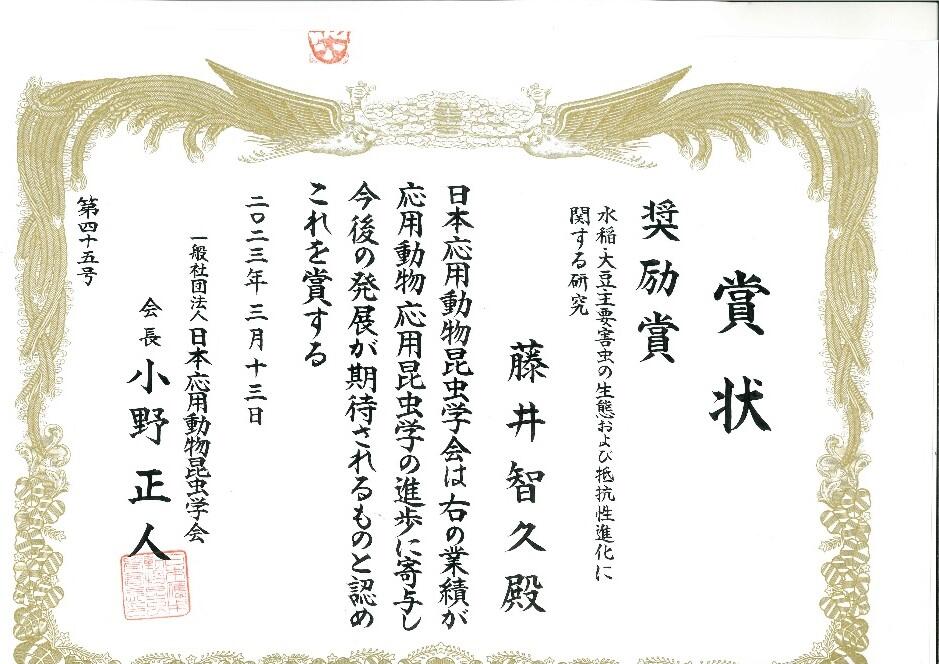 賞状
奨励賞
水稲・大豆主要害虫の生態および抵抗性進化に
関する研究
藤井智久殿
日本応用動物昆虫学会は右の業績が
応用動物応用昆虫学の進歩に寄与し
今後の発展が期待されるものと認め
これを賞する
二〇二三年三月十三日
一般社団法人日本応用動物昆虫学会
会長小野正人
第四十五号